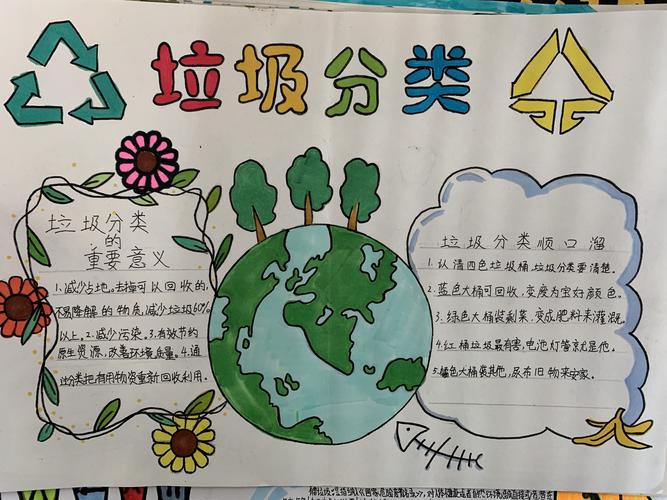 垃圾分类
垃圾分类
的
重要意义
1.减少占地.去掉可以回收的,
不易降解的物质,减少垃圾60%
以上.2.减少污染.3.有效节约
原生资源,改善环境质量.4.通
过分类把有用物资重新回收利用.
垃圾分类顺口溜
1.认清四色垃圾桶,垃圾分类要清楚.
2.蓝色大桶可回收,变废为宝好颜色.
3.绿色大桶装剩菜,变成肥料来灌溉.
4.红桶垃圾最有害,电池灯管就是他.
5.橙色大桶装其他,尿布旧物来安家.